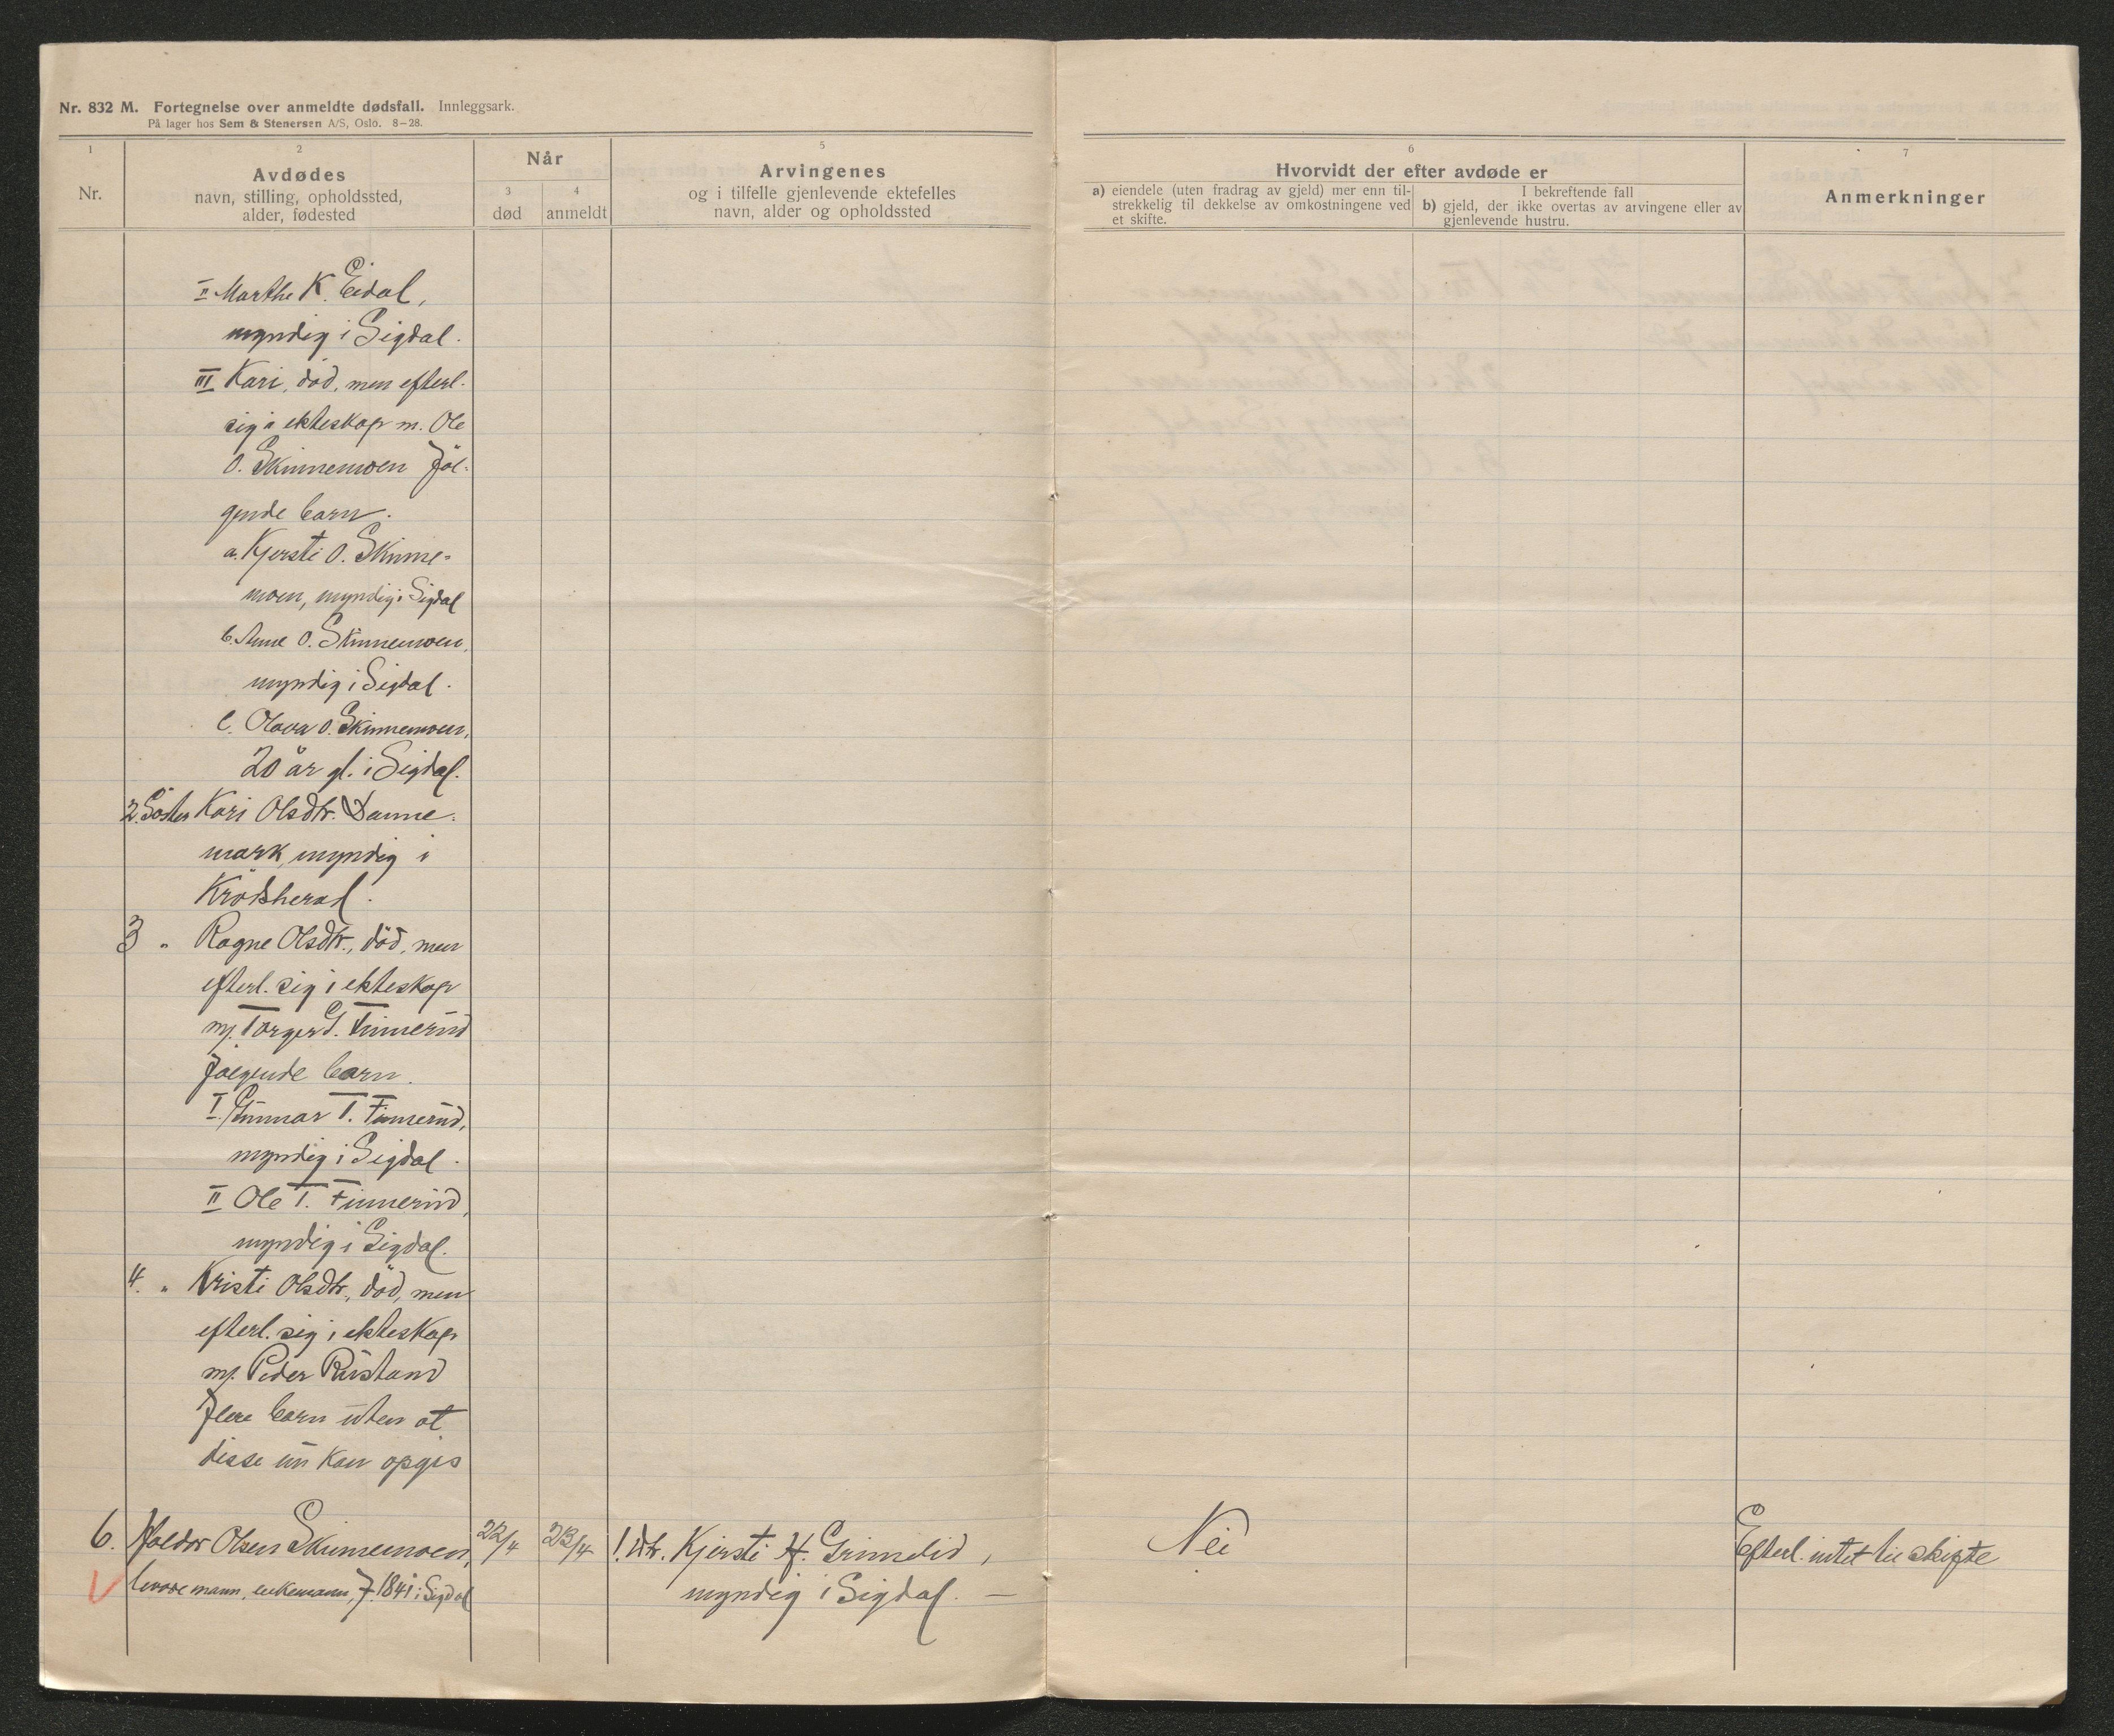 Nr. 832 M. Fortegnelse over anmeldte dødsfall. Innleggsark.
På lager hos Sem & Stenersen A/S, Oslo. 8-28.
1
Nr.
2
Avdødes
navn, stilling, opholdssted,
alder, fødested
Når
3
død
4
anmeldt
5
Arvingenes
og i tilfelle gjenlevende ektefelles
navn, alder og opholdssted
6
Hvorvidt der efter avdøde er
a) eiendele (uten fradrag av gjeld) mer enn til-
strekkelig til dekkelse av omkostningene ved
et skifte.
I bekreftende fall
b) gjeld, der ikke overtas av arvingene eller av
gjenlevende hustru.
7
Anmerkninger
II Marthe K. Eidal,
myndig i Sigdal.
III Kari, död, men efterl.
sig i ekteskap m. Ole
O. Skinnemoen föl-
gende barn.
a. Kjersti O. Skinne-
moen, myndig i Sigdal
b. Anne O. Skinnemoen,
myndig i Sigdal.
c. Olava O. Skinnemoen,
20 år gl. i Sigdal.
2. Söster Kari Olsdtr. Danne-
mark, myndig i
Krödsherad.
3 " Ragne Olsdtr., död, men
efterl. sig i ekteskap
m/ Torger G. Finnerud
fölgende barn.
I. Gunnar T. Finnerud,
myndig i Sigdal.
II Ole T. Finnerud,
myndig i Sigdal.
4. " Kristi Olsdtr., död, men
efterl. sig i ekteskap
m/ Peder Rustand
flere barn uten at
disse kan opgis
6. Haldor Olsen Skinnemoen, 22/4 23/4 1. Dtr. Kjersti H. Grimelid, Nei Efterl. intet til skifte
mann, enkemann, f. 1841 i Sigdal myndig i Sigdal. —